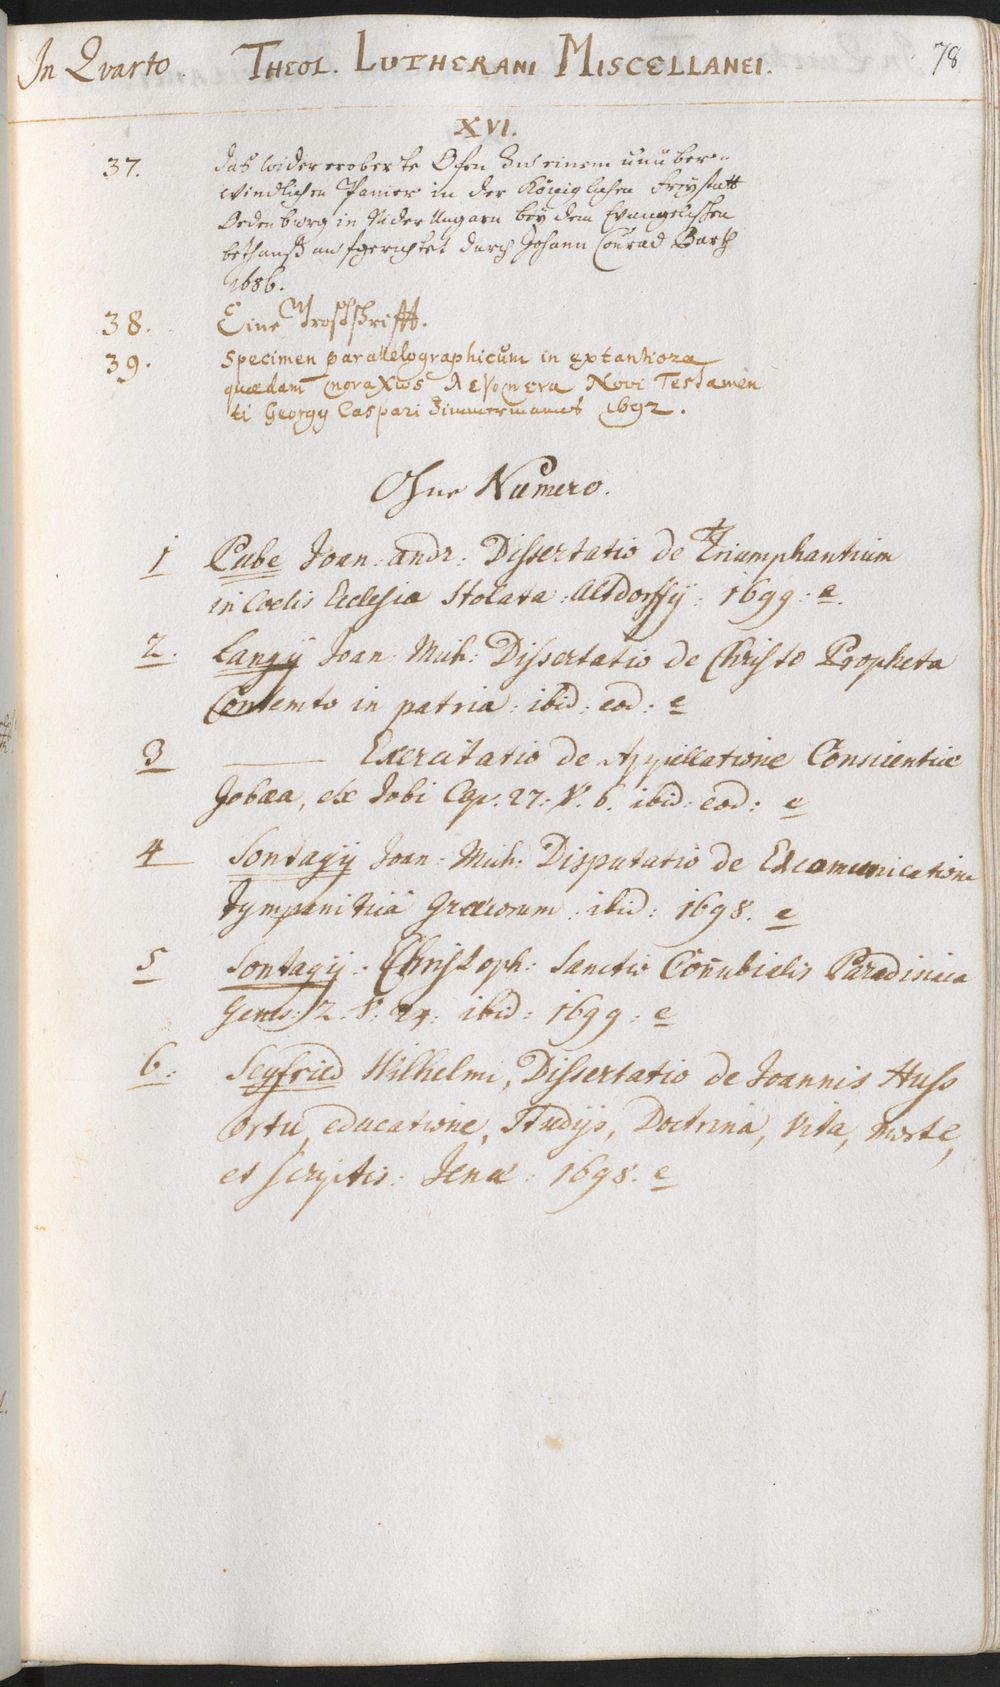 In Qvarto. THEOL. LUTHERANI MISCELLANEI. 78
XVI.
37. das widereroberte Ofen zu einem unüber=
windlichen Panier in der Königlichen Freystatt
Oedenburg in Nider Ungarn bey dem Evangelischen
betthauß aufgerichtet durch Johann Conrad Barth
1686.
38. Eine Trostschrifft.
39. Specimen parallelographicum in extantiora
quædam Novi Testamen
ti Georgy Caspari Zimmermanns 1692.
Ohne Numero.
1 Pabe Joan: andr: Dissertatio de Triumphantium
in Coelis Ecclesia Stolata: Altdorffij: 1699: e.
2. Langij Joan: Mich: Dissertatio de Christo Propheta
Contemto in patria: ibid: eod: e
3 ——— Exercitatio de Appellatione Conscientiæ
Jobæa, ex Jobi Cap. 27: V. 6. ibid: eod: e
4 Sontagij Joan: Mich: Disputatio de Excomunicatione
tympanitica Græcorum: ibid: 1698. e
5 Sontagij: Christoph: Sanctio Coñubialis Paradisiaca
Genes: 2. V. 24: ibid: 1699: e
6: Seyfried Wilhelmi, Dissertatio de Joannis Huss
Ortu, educatione, Studijs, Doctrina, Vita, morte,
et Scriptis: Jenæ: 1698. e